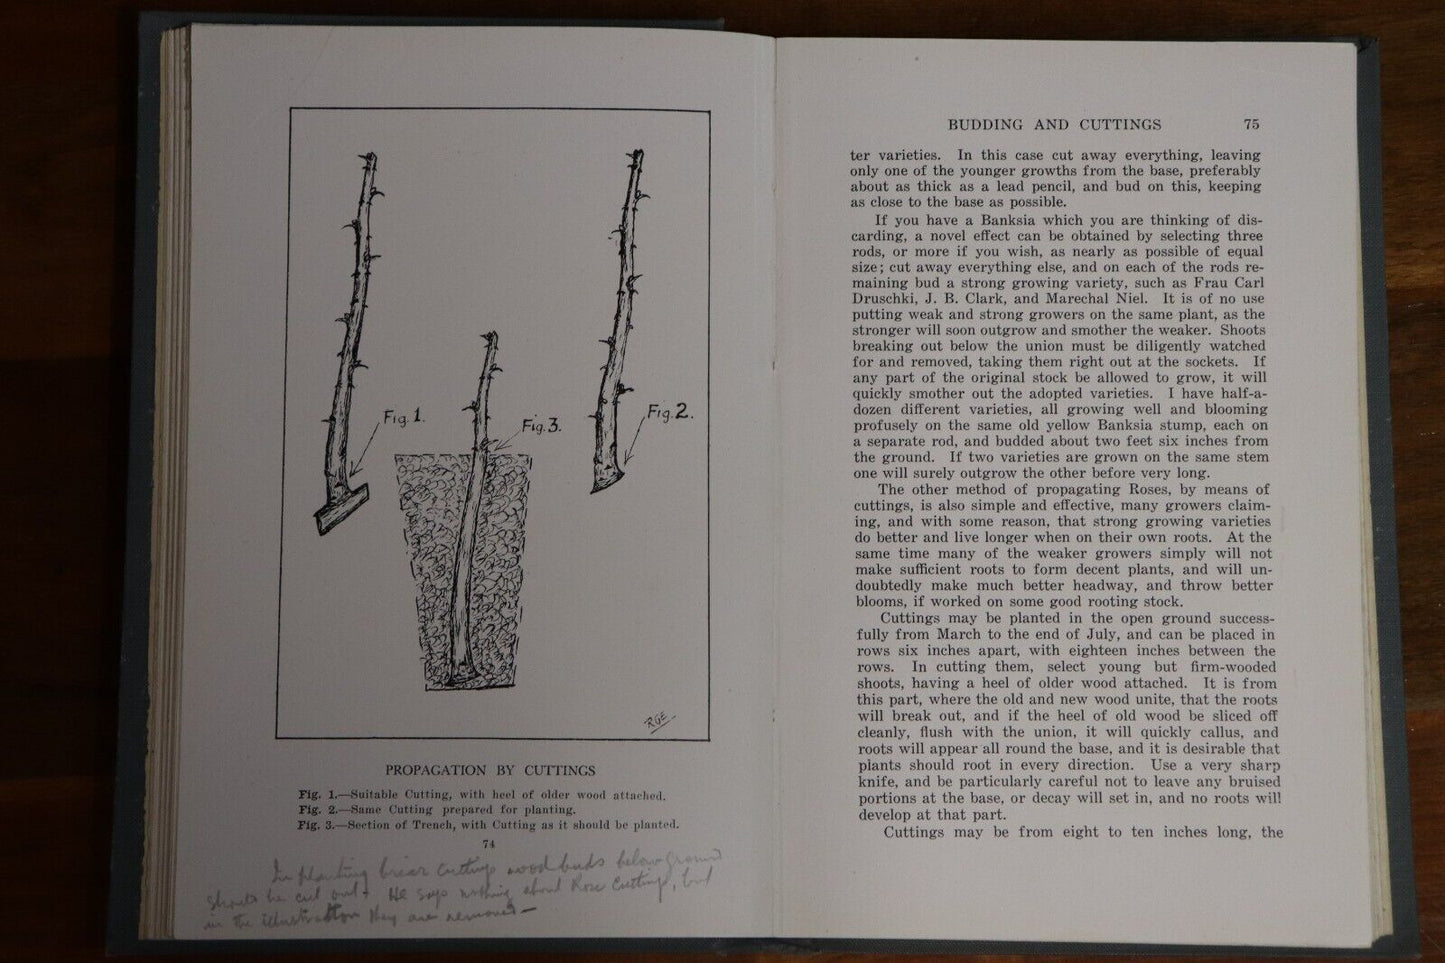 Fig. 1.
Fig. 3.
Fig. 2.
RGE
PROPAGATION BY CUTTINGS
Fig. 1.—Suitable Cutting, with heel of older wood attached.
Fig. 2.—Same Cutting prepared for planting.
Fig. 3.—Section of Trench, with Cutting as it should be planted.
74
In planting briar cuttings wood buds below ground
should be cut out. He says nothing about Rose Cuttings, but
in the illustration they are removed —
BUDDING AND CUTTINGS 75
ter varieties. In this case cut away everything, leaving
only one of the younger growths from the base, preferably
about as thick as a lead pencil, and bud on this, keeping
as close to the base as possible.
If you have a Banksia which you are thinking of dis-
carding, a novel effect can be obtained by selecting three
rods, or more if you wish, as nearly as possible of equal
size; cut away everything else, and on each of the rods re-
maining bud a strong growing variety, such as Frau Carl
Druschki, J. B. Clark, and Marechal Niel. It is of no use
putting weak and strong growers on the same plant, as the
stronger will soon outgrow and smother the weaker. Shoots
breaking out below the union must be diligently watched
for and removed, taking them right out at the sockets. If
any part of the original stock be allowed to grow, it will
quickly smother out the adopted varieties. I have half-a-
dozen different varieties, all growing well and blooming
profusely on the same old yellow Banksia stump, each on
a separate rod, and budded about two feet six inches from
the ground. If two varieties are grown on the same stem
one will surely outgrow the other before very long.
The other method of propagating Roses, by means of
cuttings, is also simple and effective, many growers claim-
ing, and with some reason, that strong growing varieties
do better and live longer when on their own roots. At the
same time many of the weaker growers simply will not
make sufficient roots to form decent plants, and will un-
doubtedly make much better headway, and throw better
blooms, if worked on some good rooting stock.
Cuttings may be planted in the open ground success-
fully from March to the end of July, and can be placed in
rows six inches apart, with eighteen inches between the
rows. In cutting them, select young but firm-wooded
shoots, having a heel of older wood attached. It is from
this part, where the old and new wood unite, that the roots
will break out, and if the heel of old wood be sliced off
cleanly, flush with the union, it will quickly callus, and
roots will appear all round the base, and it is desirable that
plants should root in every direction. Use a very sharp
knife, and be particularly careful not to leave any bruised
portions at the base, or decay will set in, and no roots will
develop at that part.
Cuttings may be from eight to ten inches long, the